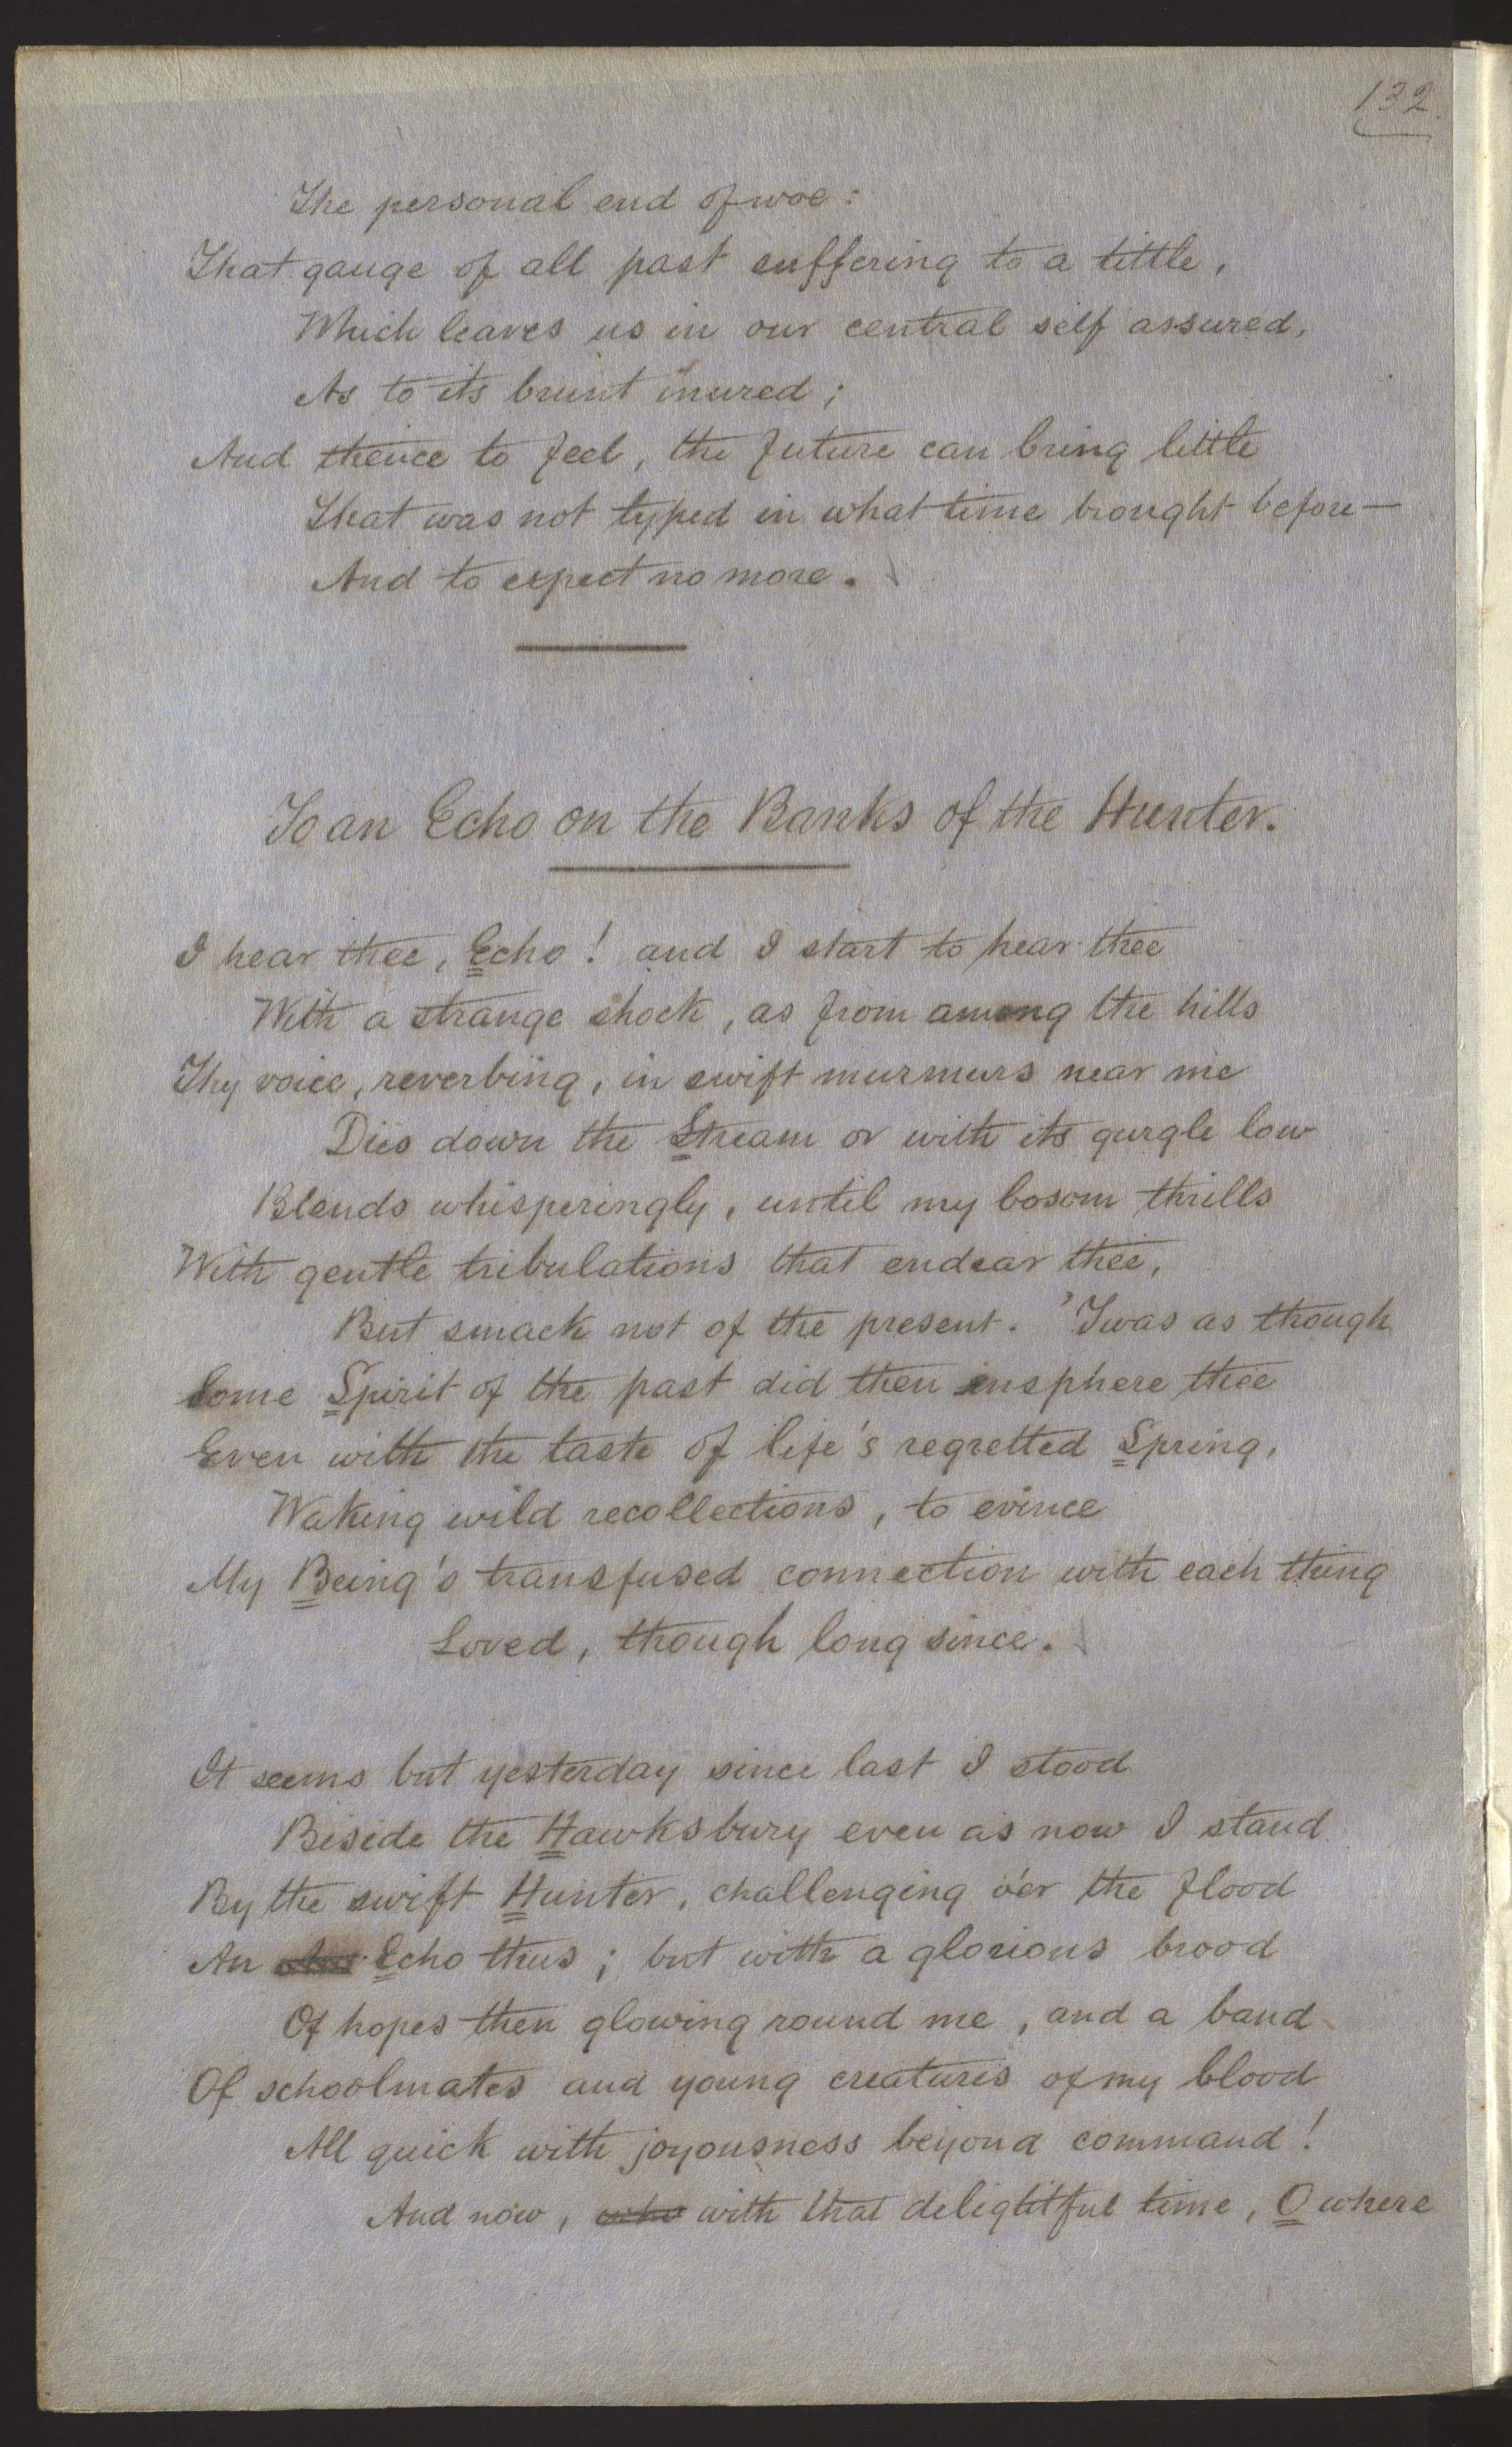 132.
The personal end of woe:
That gauge of all past suffering to a tittle,
Which leaves us in our central self assured,
As to its brunt inured;
And thence to feel, the future can bring little
That was not typed in what time brought before—
And to expect no more.
To an Echo on the Banks of the Hunter.
I hear thee, Echo! and I start to hear thee
With a strange shock, as from among the hills
Thy voice, reverbing, in swift murmurs near me
Dies down the Stream or with its gurgle low
Blends whisperingly, until my bosom thrills
With gentle tribulations that endear thee,
But smack not of the present. 'Twas as though
Some Spirit of the past did then insphere thee
Even with the taste of life's regretted Spring,
Waking wild recollections, to evince
My Being's transfused connection with each thing
Loved, though long since.
It seems but yesterday since last I stood
Beside the Hawksbury even as now I stand
By the swift Hunter, challenging o'er the flood
An Echo thus; but with a glorious brood
Of hopes then glowing round me, and a band
Of schoolmates and young creatures of my blood
All quick with joyousness beyond command!
And now, who with that delightful time, O where